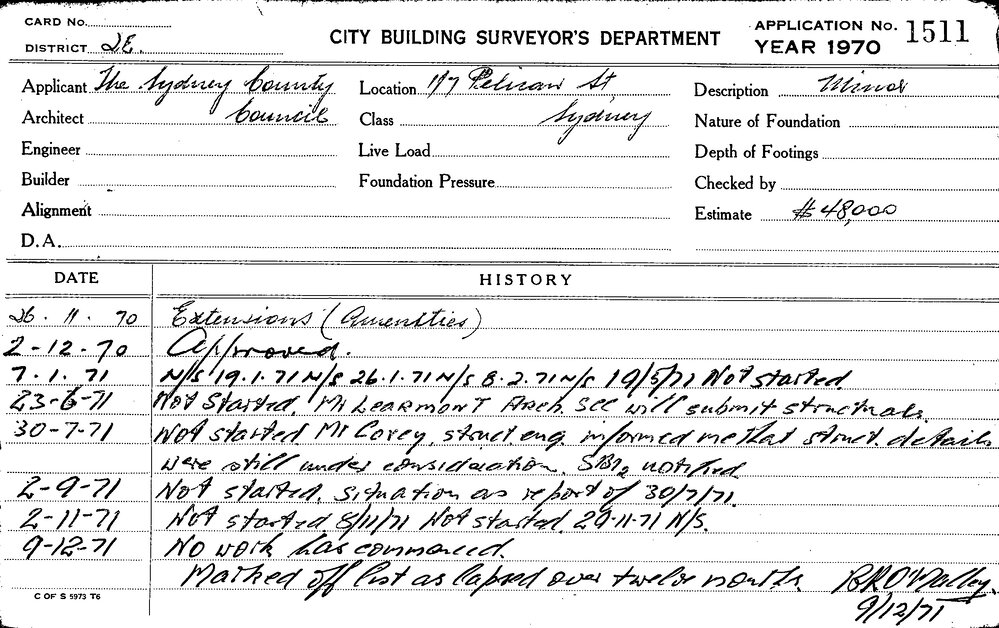 CARD No.
DISTRICT 2E.
CITY BUILDING SURVEYOR'S DEPARTMENT
APPLICATION No. 1511
YEAR 1970
Applicant The Sydney County
Location 1/7 Pelican St
Description Minor
Architect Council
Class Sydney
Nature of Foundation
Engineer
Live Load
Depth of Footings
Builder
Foundation Pressure
Checked by
Alignment
Estimate $48,000
D.A.
DATE HISTORY
26.11.70 Extensions (Amenities)
2-12-70 Approved.
7.1.71 N/S 19.1.71 N/S 26.1.71 N/S 8.2.71 N/S 19/5/71 Not started.
23-6-71 Not Started. Mr Learmont Arch. SCC will submit structurals.
30-7-71 Not started Mr Corey, struct eng. informed me that struct. details
were still under consideration. notified
2-9-71 Not started. Situation as report of 30/7/71.
2-11-71 Not started 8/11/71 Not started. 29-11-71 N/S.
9-12-71 No work has commenced.
Marked off list as lapsed over twelve months. BRO'Malley.
9/12/71
C OF S 5973 T6